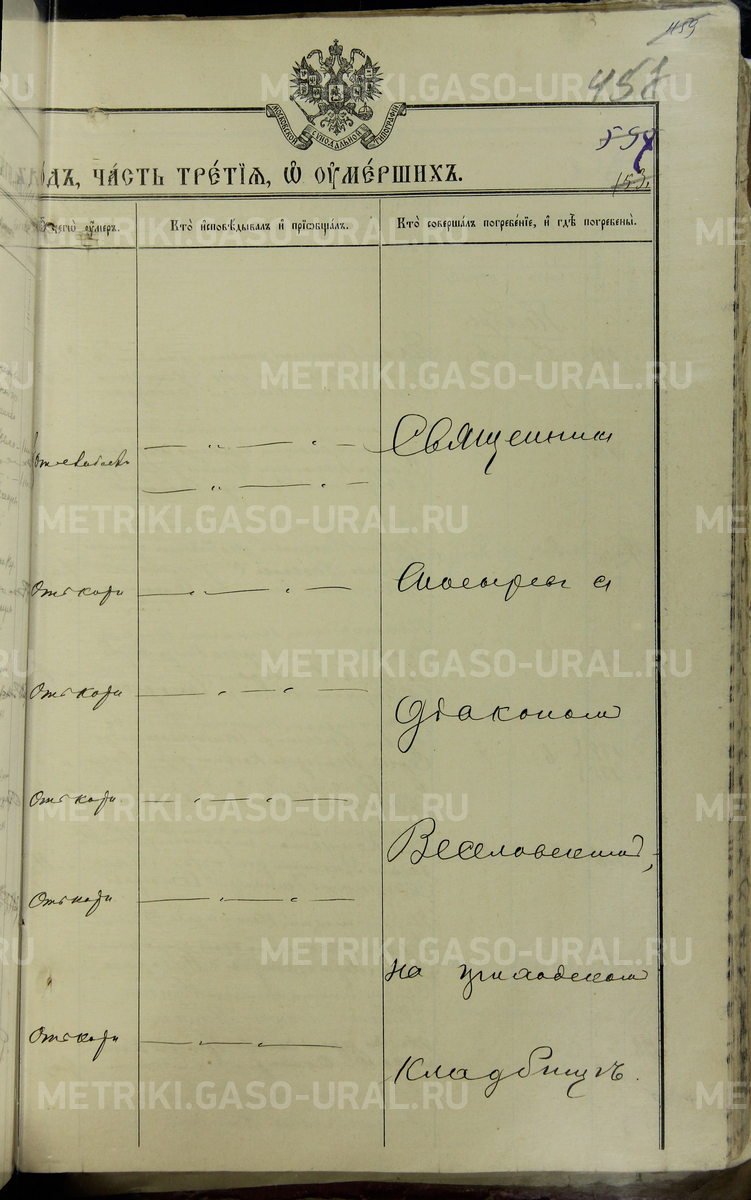 459
457
597
153.
МОСКОВСКОЙ СѴНОДАЛЬНОЙ ТИПОГРАФІИ
ОДЪ, ЧА́СТЬ ТРЕ́ТІѦ, Ѡ ОУ҆МЕ́РШИХЪ.
чегѡ̀ оу҆́меръ.
Кто̀ и҆сповѣ́дывалъ и҆ прїѡбща́лъ.
Кто̀ соверша́лъ погребе́нїе, и҆ гдѣ̀ погребены̀.
Священник
Отъ кори
и
Отъ кори
Діаконом
Отъ кори
Веселовским,
Отъ кори
на приходском
Отъ кори
кладбищѣ.
METRIKI.GASO-URAL.RU